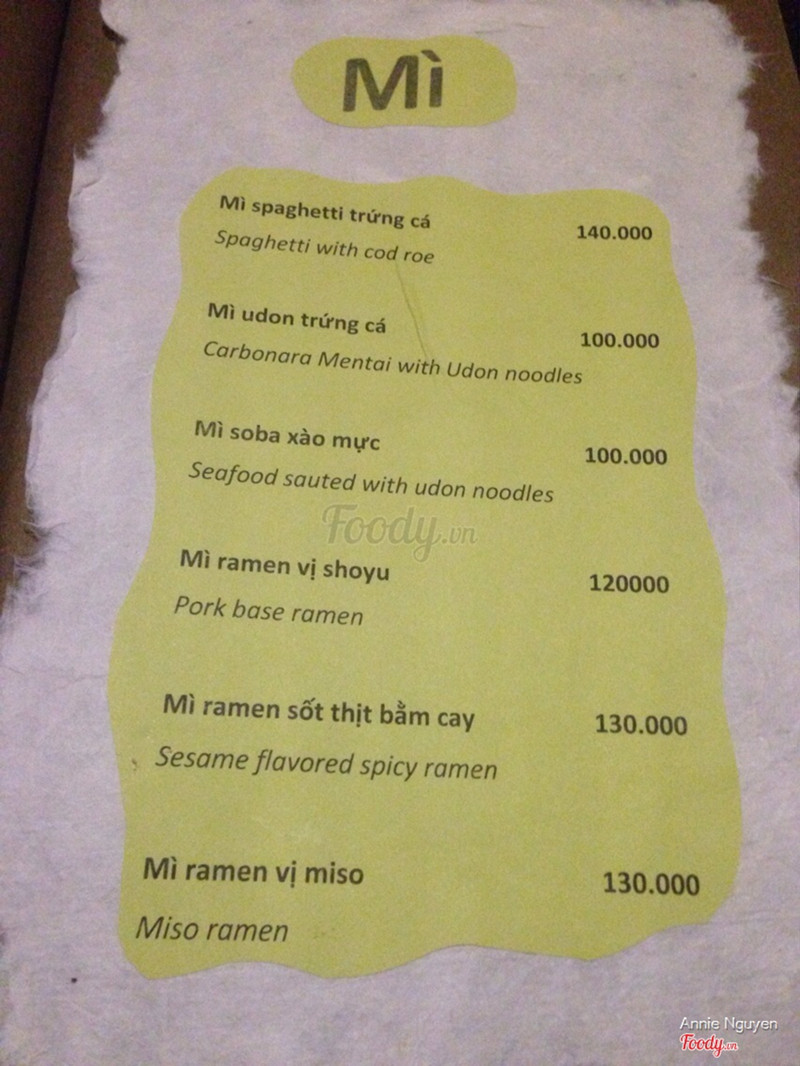 Mì
Mì spaghetti trứng cá 140.000
Spaghetti with cod roe
Mì udon trứng cá 100.000
Carbonara Mentai with Udon noodles
Mì soba xào mực 100.000
Seafood sauted with udon noodles
Foody.vn
Mì ramen vị shoyu 120000
Pork base ramen
Mì ramen sốt thịt bằm cay 130.000
Sesame flavored spicy ramen
Mì ramen vị miso 130.000
Miso ramen
Annie Nguyen
Foody.vn